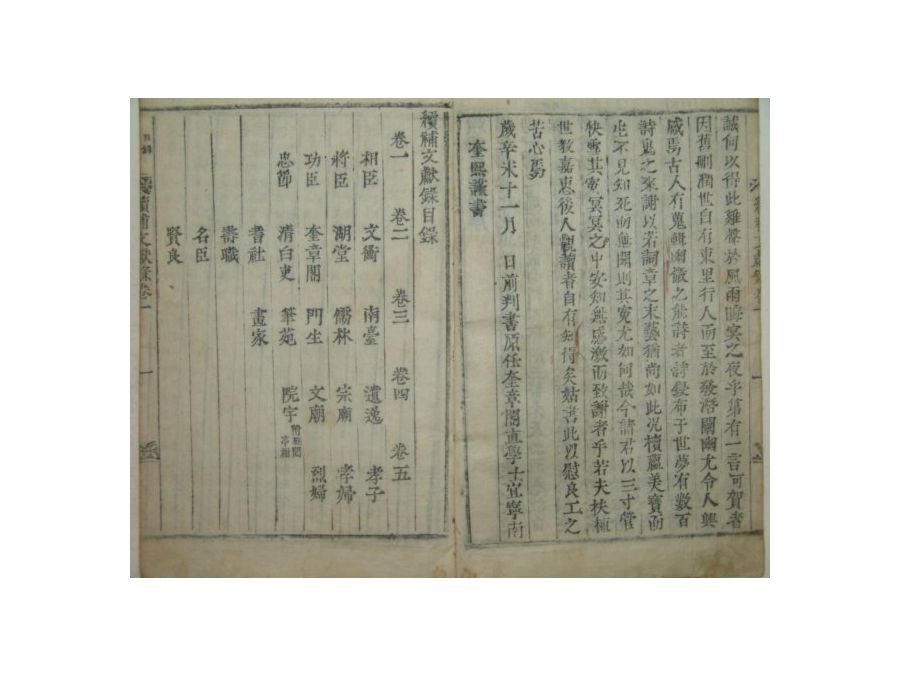 誠何以得此雞聲於風雨晦冥之夜乎第有一言可賀者
因舊刪潤世自有東里行人而至於發潛闡幽尤令人興
感焉古人有蒐輯幽微之能詩者詩發布于世夢有數百
詩鬼之來謝以若詞章之末藝猶尙如此況櫝蘊美寶而
生不見知死而無聞則其寃尤如何哉今諸君以三寸管
快雪其寃冥冥之中安知無感激而致謝者乎若夫扶植
世敎嘉惠後人觀讀者自有知得矣姑書此以慰良工之
苦心焉
歲辛未十一月 日前判書原任奎章閣直學士宜寧南
奎熙謹書
續補文獻錄目錄
卷一 卷二 卷三 卷四 卷五
相臣 文衡 南臺 遺逸 孝子
將臣 湖堂 儒林 宗廟 孝婦
功臣 奎章閣 門生 文廟 烈婦
忠節 淸白吏 筆苑 院宇
耆社 畫家
壽職
名臣
賢良
目錄
續補文獻錄卷一 一